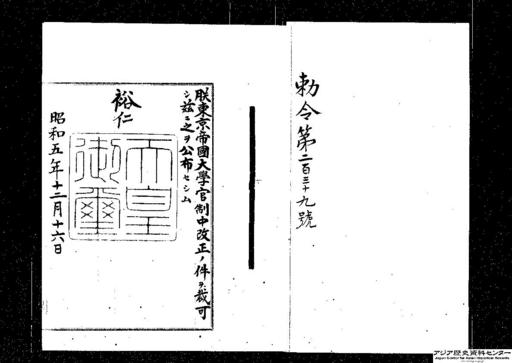 勅令第二百三十九號
朕東京帝國大學官制中改正ノ件ヲ裁可
シ茲ニ之ヲ公布セシム
裕仁
天皇御璽
昭和五年十二月十六日
アジア歴史資料センター
Japan Center for Asian Historical Records